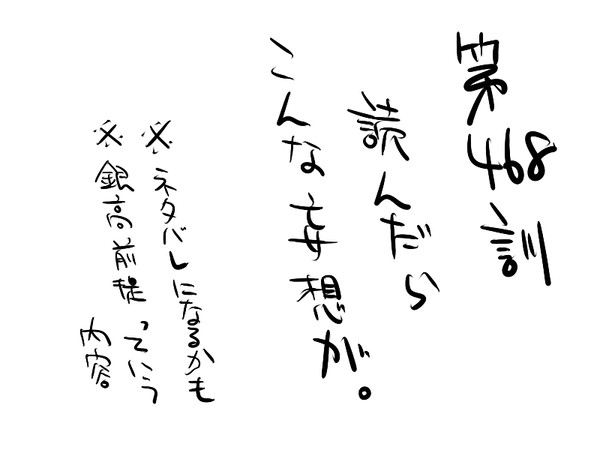 第468訓
読んだら
こんな妄想が。
※ネタバレになるかも
※銀高前提っていう
内容。